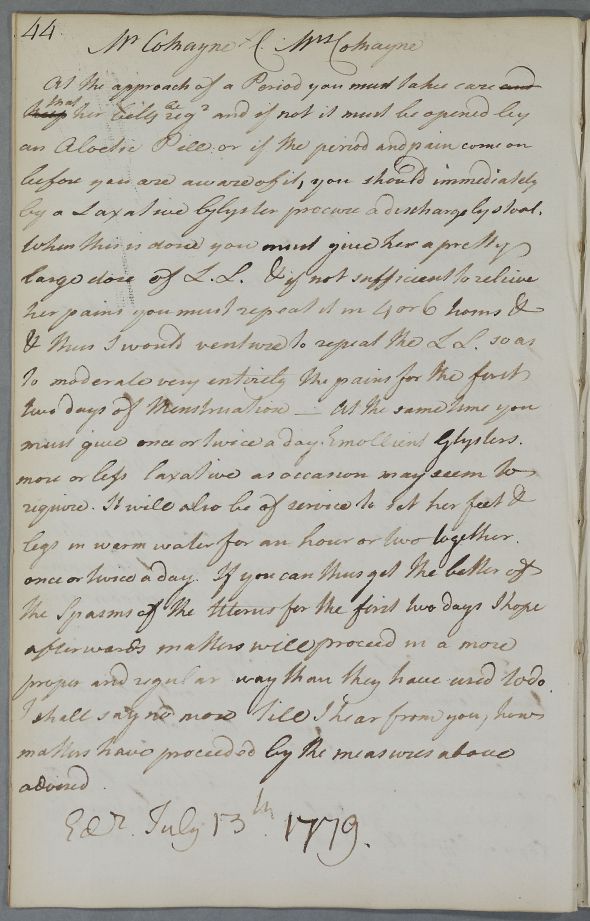 44
Mr Cokayne C. Mrs Cokayne
At the approach of a Period you must take care and
keep that her belly be regr and if not it must be opened by
an Aloetic Pill or if the period and pain come on
before you are aware of it, you should immediately
by a Laxative Glyster procure a discharge by stool.
When this is done you must give her a pretty
large dose of L.L. & if not sufficient to relieve
her pains you must repeat it in 4 or 6 hours &
& thus I would venture to repeat the L L. so as
to moderate very entirely the pains for the first
two days of Menstruation — At the same time you
must give once or twice a day Emollient Glysters.
more or less laxative as occasion may seem to
require. It will also be of service to set her feet &
legs in warm water for an hour or two together.
once or twice a day. If you can thus get the better of
the Spasms of the Uterus for the first two days I hope
afterwards matters will proceed in a more
proper and regular way than they have used to do.
I shall say no more till I hear from you, how
matters have proceeded by the measures above
advised.
Edr. July 13th 1779.